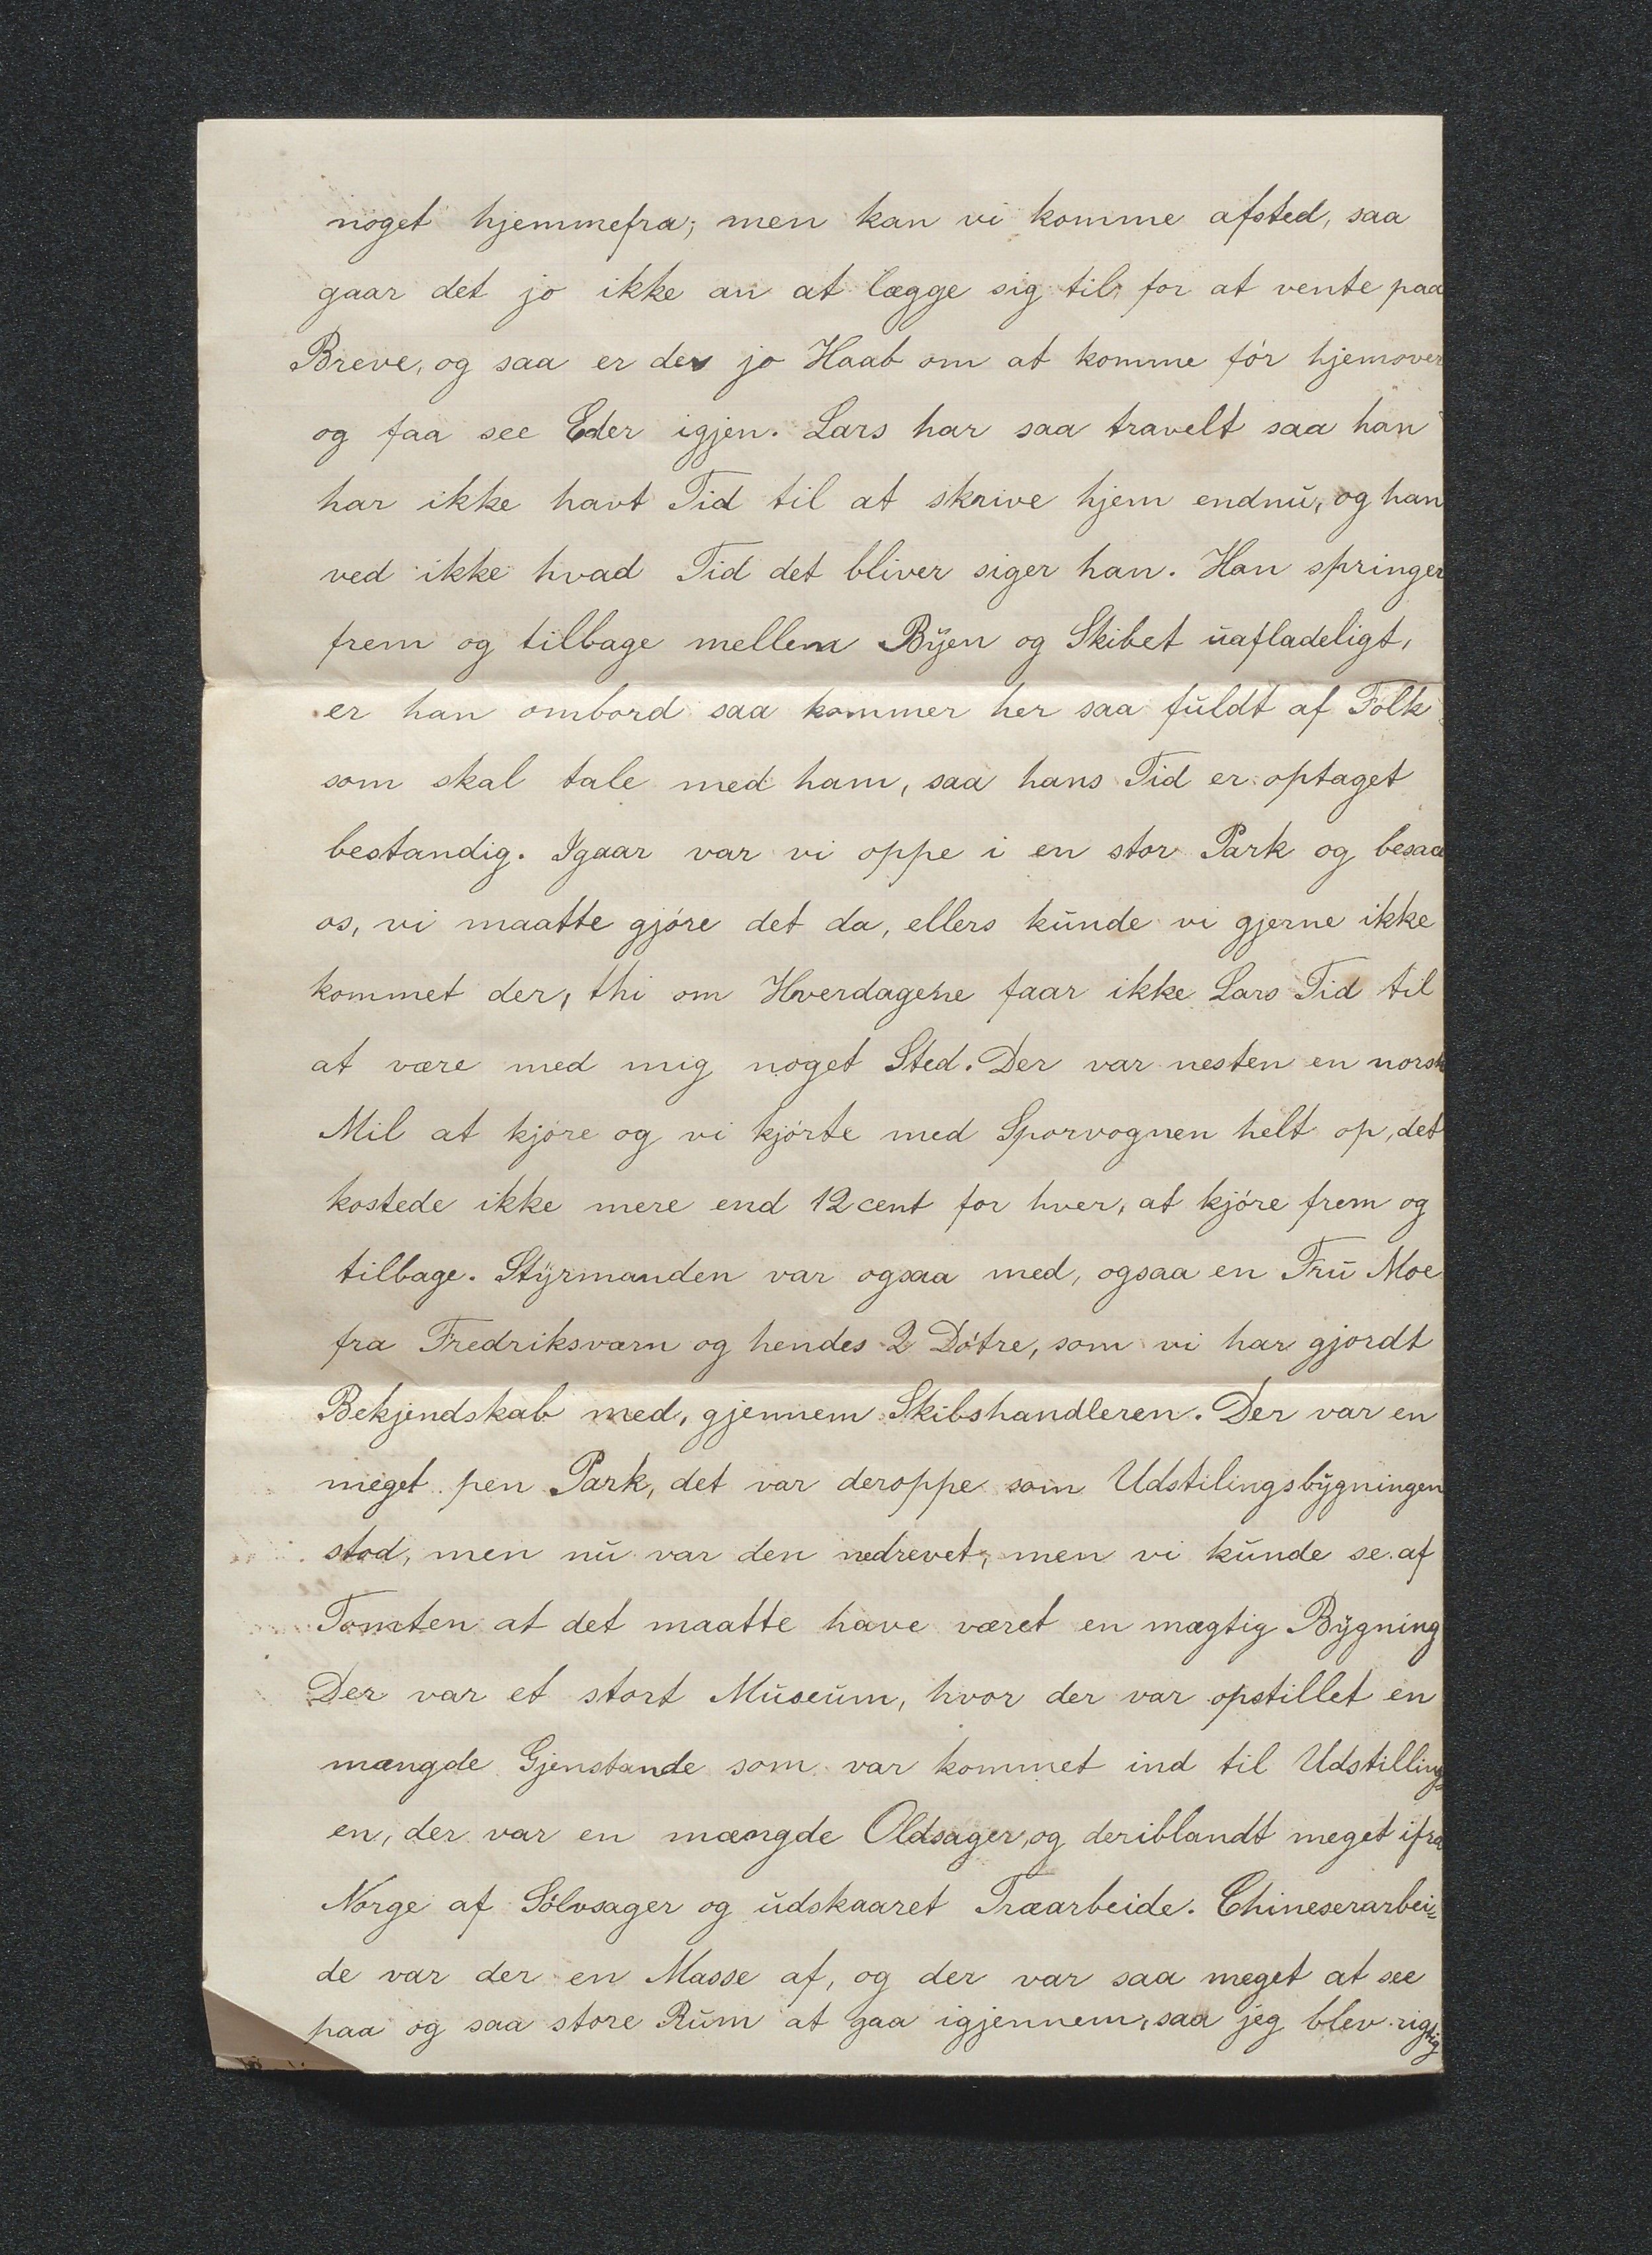 noget hjemmefra; men kan vi komme afsted, saa
gaar det jo ikke an at lægge sig til for at vente paa
Breve, og saa er der jo Haab om at komme før hjemover
og faa see Eder igjen. Lars har saa travelt saa han
har ikke havt Tid til at skrive hjem endnu, og han
ved ikke hvad Tid det bliver siger han. Han springer
frem og tilbage mellem Byen og Skibet uafladeligt,
er han ombord saa kommer her saa fuldt af Folk
som skal tale med ham, saa hans Tid er optaget
bestandig. Igaar var vi oppe i en stor Park og besaa
os, vi maatte gjøre det da, ellers kunde vi gjerne ikke
kommet der, thi om Hverdagene faar ikke Lars Tid til
at være med mig noget Sted. Der var nesten en norsk
Mil at kjøre og vi kjørte med Sporvognen helt op, det
kostede ikke mere end 12 cent for hver, at kjøre frem og
tilbage. Styrmanden var ogsaa med, ogsaa en Fru Moe
fra Fredriksværn og hendes 2 Døtre, som vi har gjordt
Bekjendskab med, gjennem Skibshandleren. Der var en
meget pen Park, det var deroppe som Udstilingsbygningen
stod, men nu var den nedrevet, men vi kunde se af
Tomten at det maatte have været en mægtig Bygning
Der var et stort Museum, hvor der var opstillet en
mængde Gjenstande som var kommet ind til Udstilling
en, der var en mængde Oldsager, og deriblandt meget ifra
Norge af Sølvsager og udskaaret Træarbeide. Chineserarbei=
de var der en Masse af, og der var saa meget at see
paa og saa store Rum at gaa igjennem, saa jeg blev rigtig